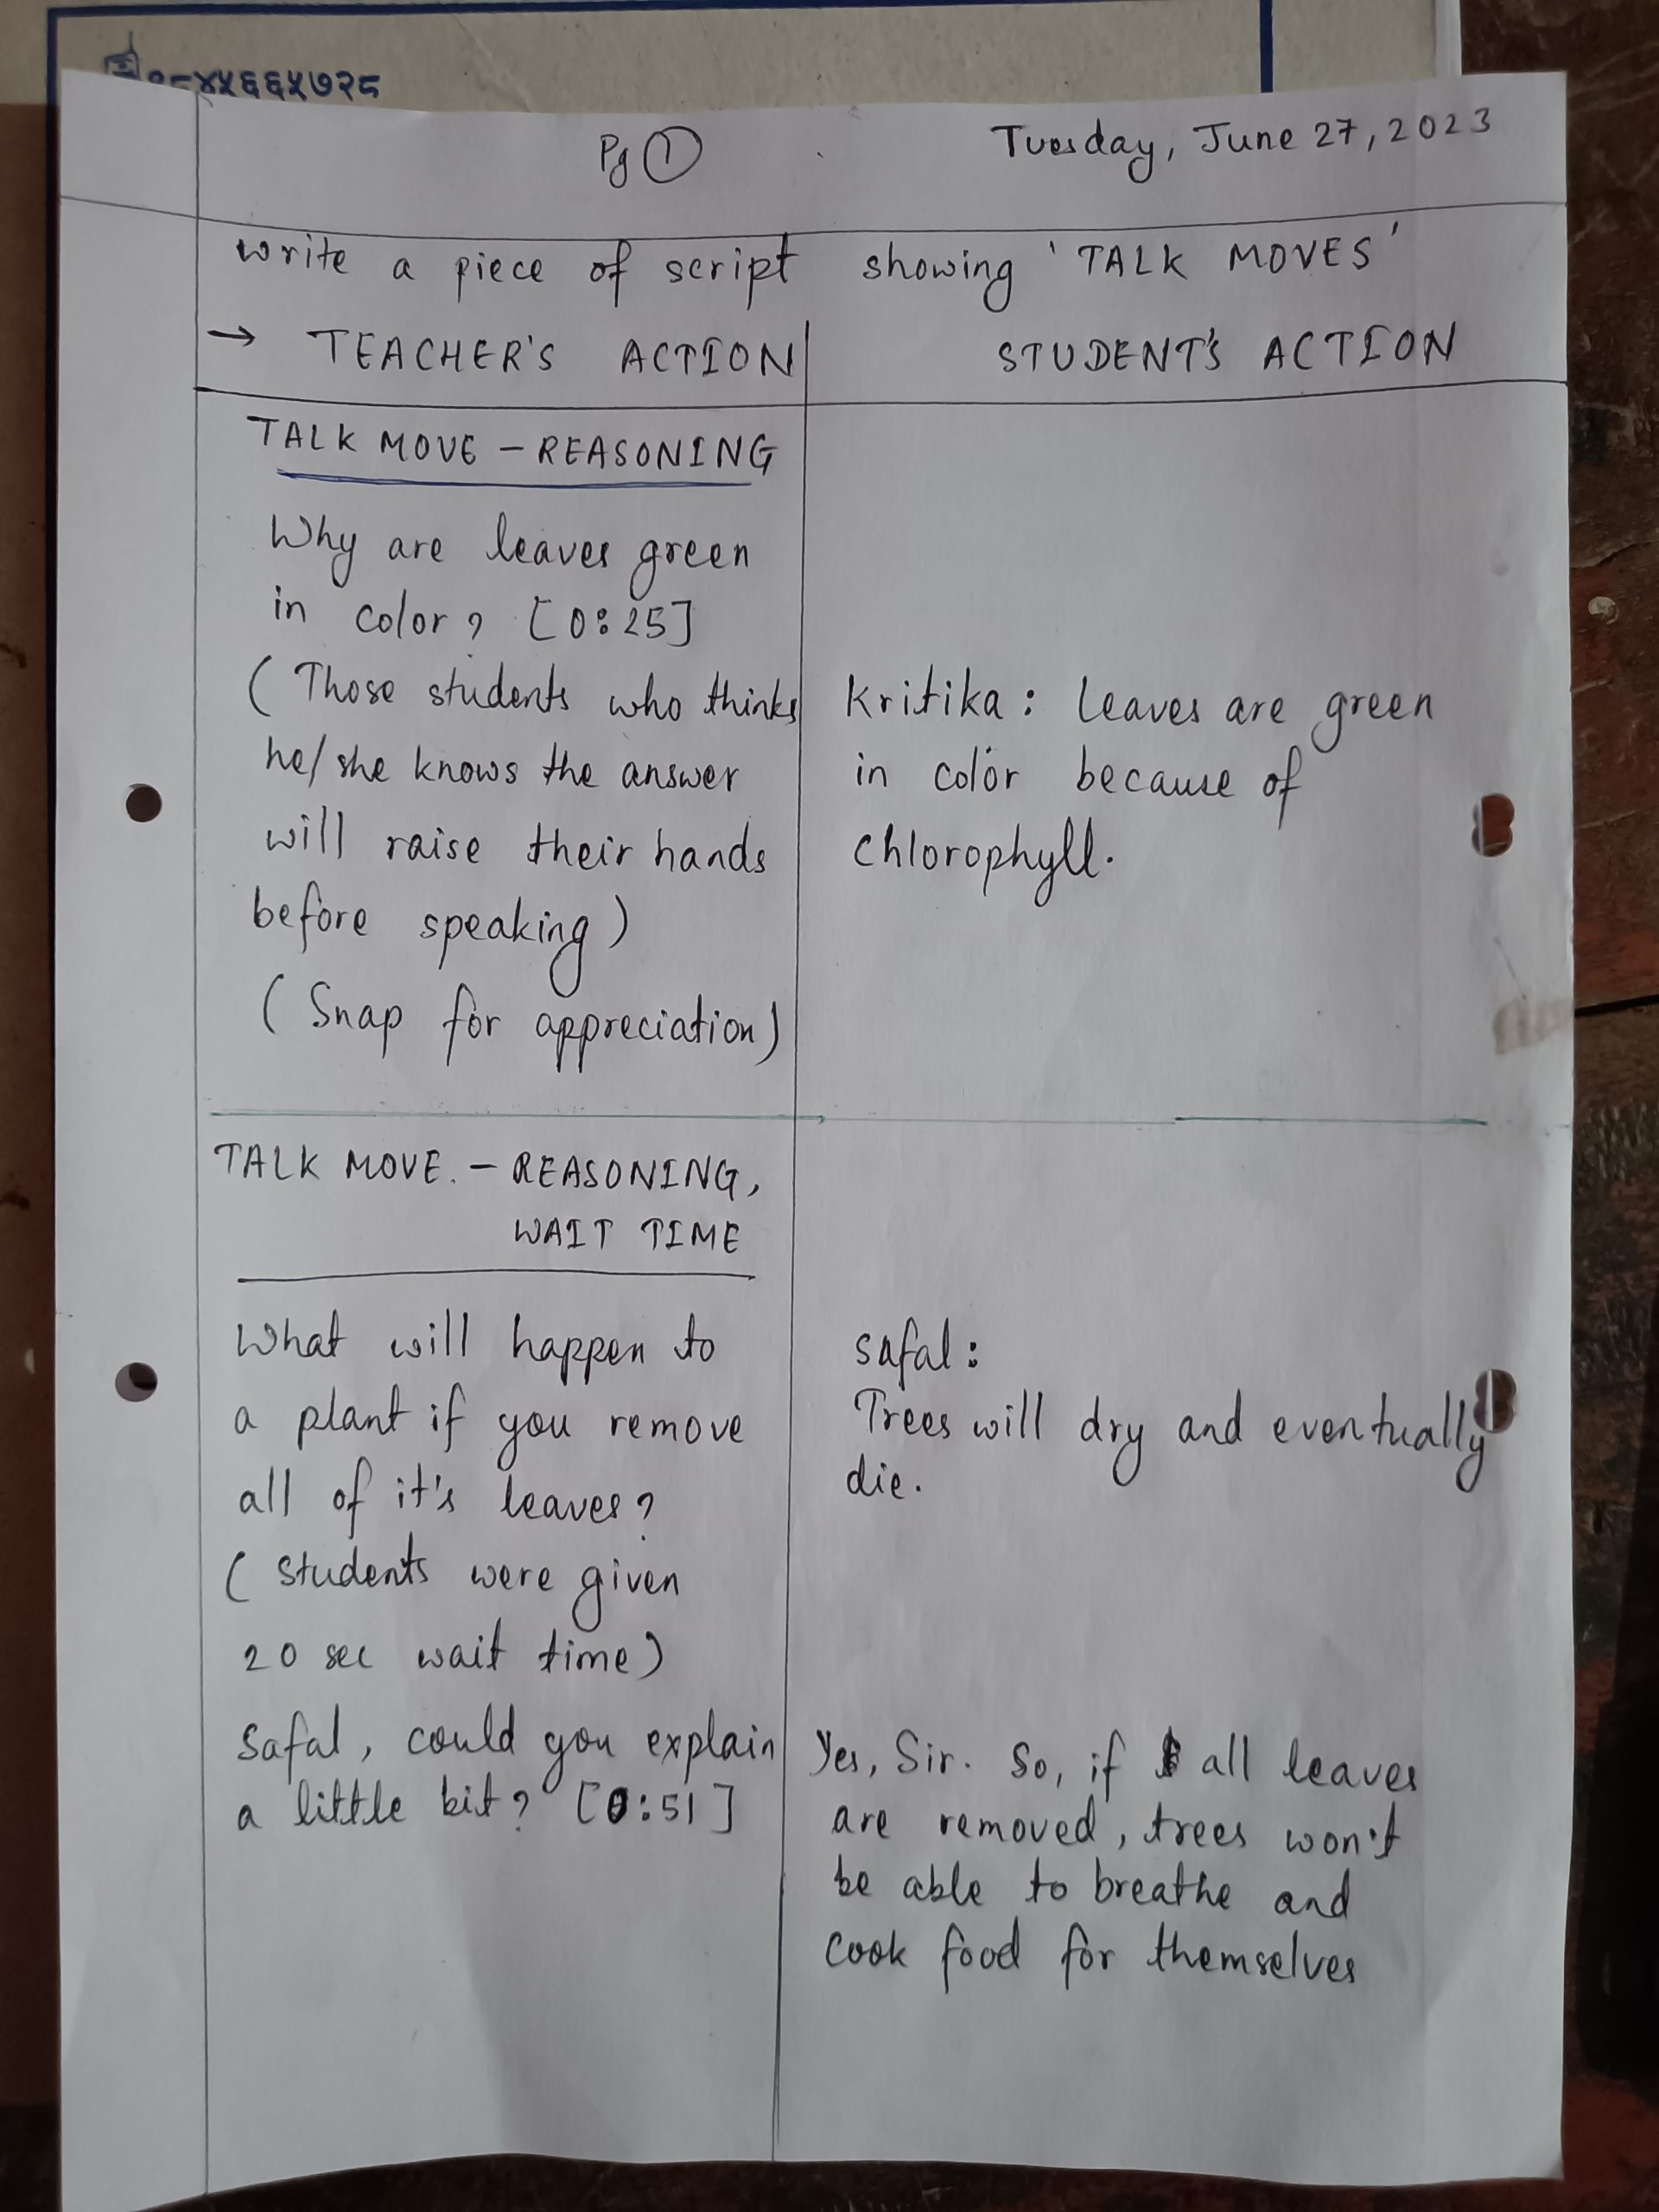 ९८४५६६५७२८
Pg 1
Tuesday, June 27, 2023
Write a piece of script showing 'TALK MOVES'
→ TEACHER'S ACTION
STUDENT'S ACTION
TALK MOVE – REASONING
Why are leaves green
in color? [0:25]
(Those students who thinks
he/she knows the answer
will raise their hands
before speaking)
(Snap for appreciation)
Kritika: Leaves are green
in color because of
chlorophyll.
TALK MOVE. – REASONING,
WAIT TIME
What will happen to
a plant if you remove
all of it's leaves?
(Students were given
20 sec wait time)
Safal:
Trees will dry and eventually
die.
Safal, could you explain
a little bit? [0:51]
Yes, Sir. So, if all leaves
are removed, trees won't
be able to breathe and
cook food for themselves